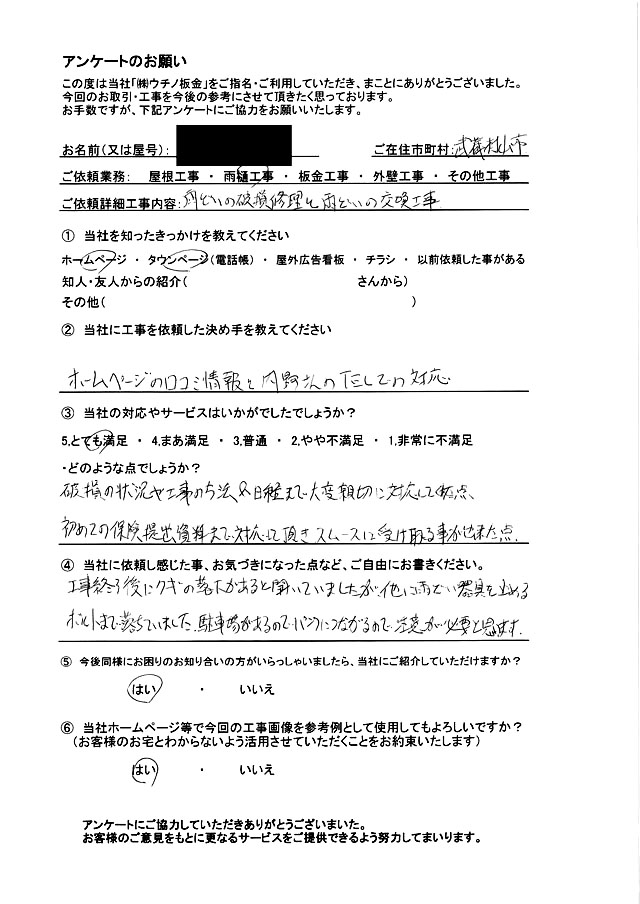 アンケートのお願い
この度は当社「㈱ウチノ板金」をご指名・ご利用していただき、まことにありがとうございました。
今回のお取引・工事を今後の参考にさせて頂きたく思っております。
お手数ですが、下記アンケートにご協力をお願いいたします。
お名前(又は屋号): ご在住市町村:武蔵村山市
ご依頼業務: 屋根工事 ・ 雨樋工事 ・ 板金工事 ・ 外壁工事 ・ その他工事
ご依頼詳細工事内容:雨どいの破損修理と雨どいの交換工事
① 当社を知ったきっかけを教えてください
ホームページ ・ タウンページ(電話帳) ・ 屋外広告看板 ・ チラシ ・ 以前依頼した事がある
知人・友人からの紹介( さんから)
その他( )
② 当社に工事を依頼した決め手を教えてください
ホームページの口コミ情報と内野さんの 対応
③ 当社の対応やサービスはいかがでしたでしょうか?
5.とても満足 ・ 4.まあ満足 ・ 3.普通 ・ 2.やや不満足 ・ 1.非常に不満足
・どのような点でしょうか?
破損の状況や工事の方法&日程まで大変親切に対応して 点、
初めての保険提出資料まで対応して頂きスムースに受け取る事が出来た点.
④ 当社に依頼し感じた事、お気づきになった点など、ご自由にお書きください。
工事終了後にクギの落下があると聞いていましたが、他に雨どい器具を止める
ボルトまで落ちていました.駐車場があるのでパンクにつながるので注意が必要と思います.
⑤ 今後同様にお困りのお知り合いの方がいらっしゃいましたら、当社にご紹介していただけますか?
はい ・ いいえ
⑥ 当社ホームページ等で今回の工事画像を参考例として使用してもよろしいですか?
(お客様のお宅とわからないよう活用させていただくことをお約束いたします)
はい ・ いいえ
アンケートにご協力していただきありがとうございまいた。
お客様のご意見をもとに更なるサービスをご提供できるよう努力してまいります。